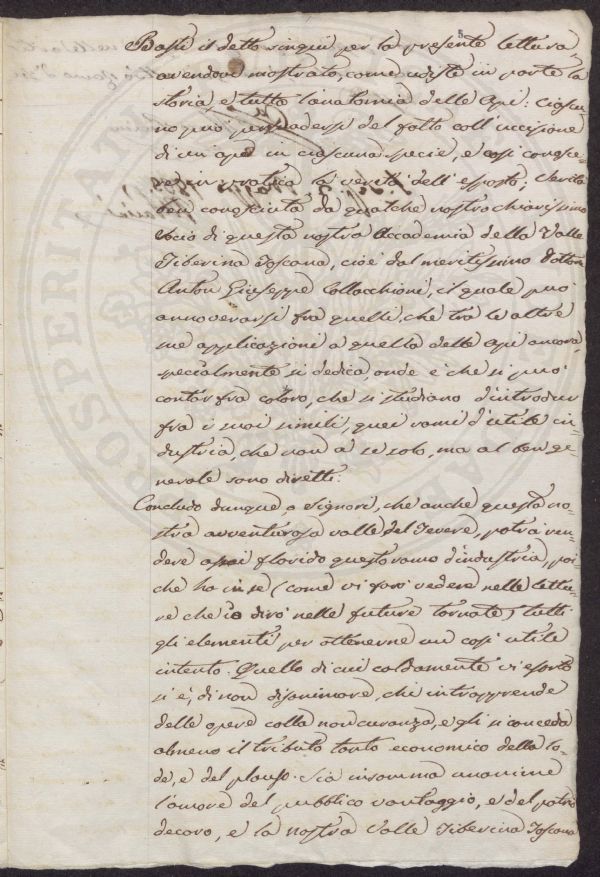 Basti il detto singui per la presente lettura,
avendovi mostrato, come udiste in parte la
storia e tutta l'anatomia delle Api: ciascu-
no può persuadersi del fatto coll'uccisione
di un ape in ciascuna specie, e così conosce-
re in pratica la verità dell'esposto; verità
ben conosciuta da qualche nostro chiarissimo
socio di questa nostra Accademia della Valle
Tiberina Toscana, cioè dal meritissimo Dottor
Anton Giuseppe Collacchioni, il quale può
annoverarsi fra quelli, che tra le altre
sue applicazioni a quella delle api ancora
specialmente si dedica, onde è che si può
contar fra coloro, che si studiano d'introdur
fra i suoi simili, quei rami d'utile in-
dustria, che non a se solo, ma al ben ge-
nerale sono diretti.
Concludo dunque, o Signori, che anche questa no-
stra avventurosa valle del Tevere, potrà ren-
dere assai florido questo ramo d'industria, poi-
che ha in se (come vi farò vedere nelle lettu-
re che io dirò nelle future tornate) tutti
gli elementi per ottenerne un così utile
intento. Quello di cui caldamente vi esorto
si è, di non disanimare, chi intrapprende
delle opere colla noncuranza, e gli si conceda
almeno il tributo tanto economico della lo-
de, e del plauso. Sia insomma unanime
l'amore del pubblico vantaggio, e del patrio
decoro, e la nostra Valle Tiberina Toscana
PROSPERITATI